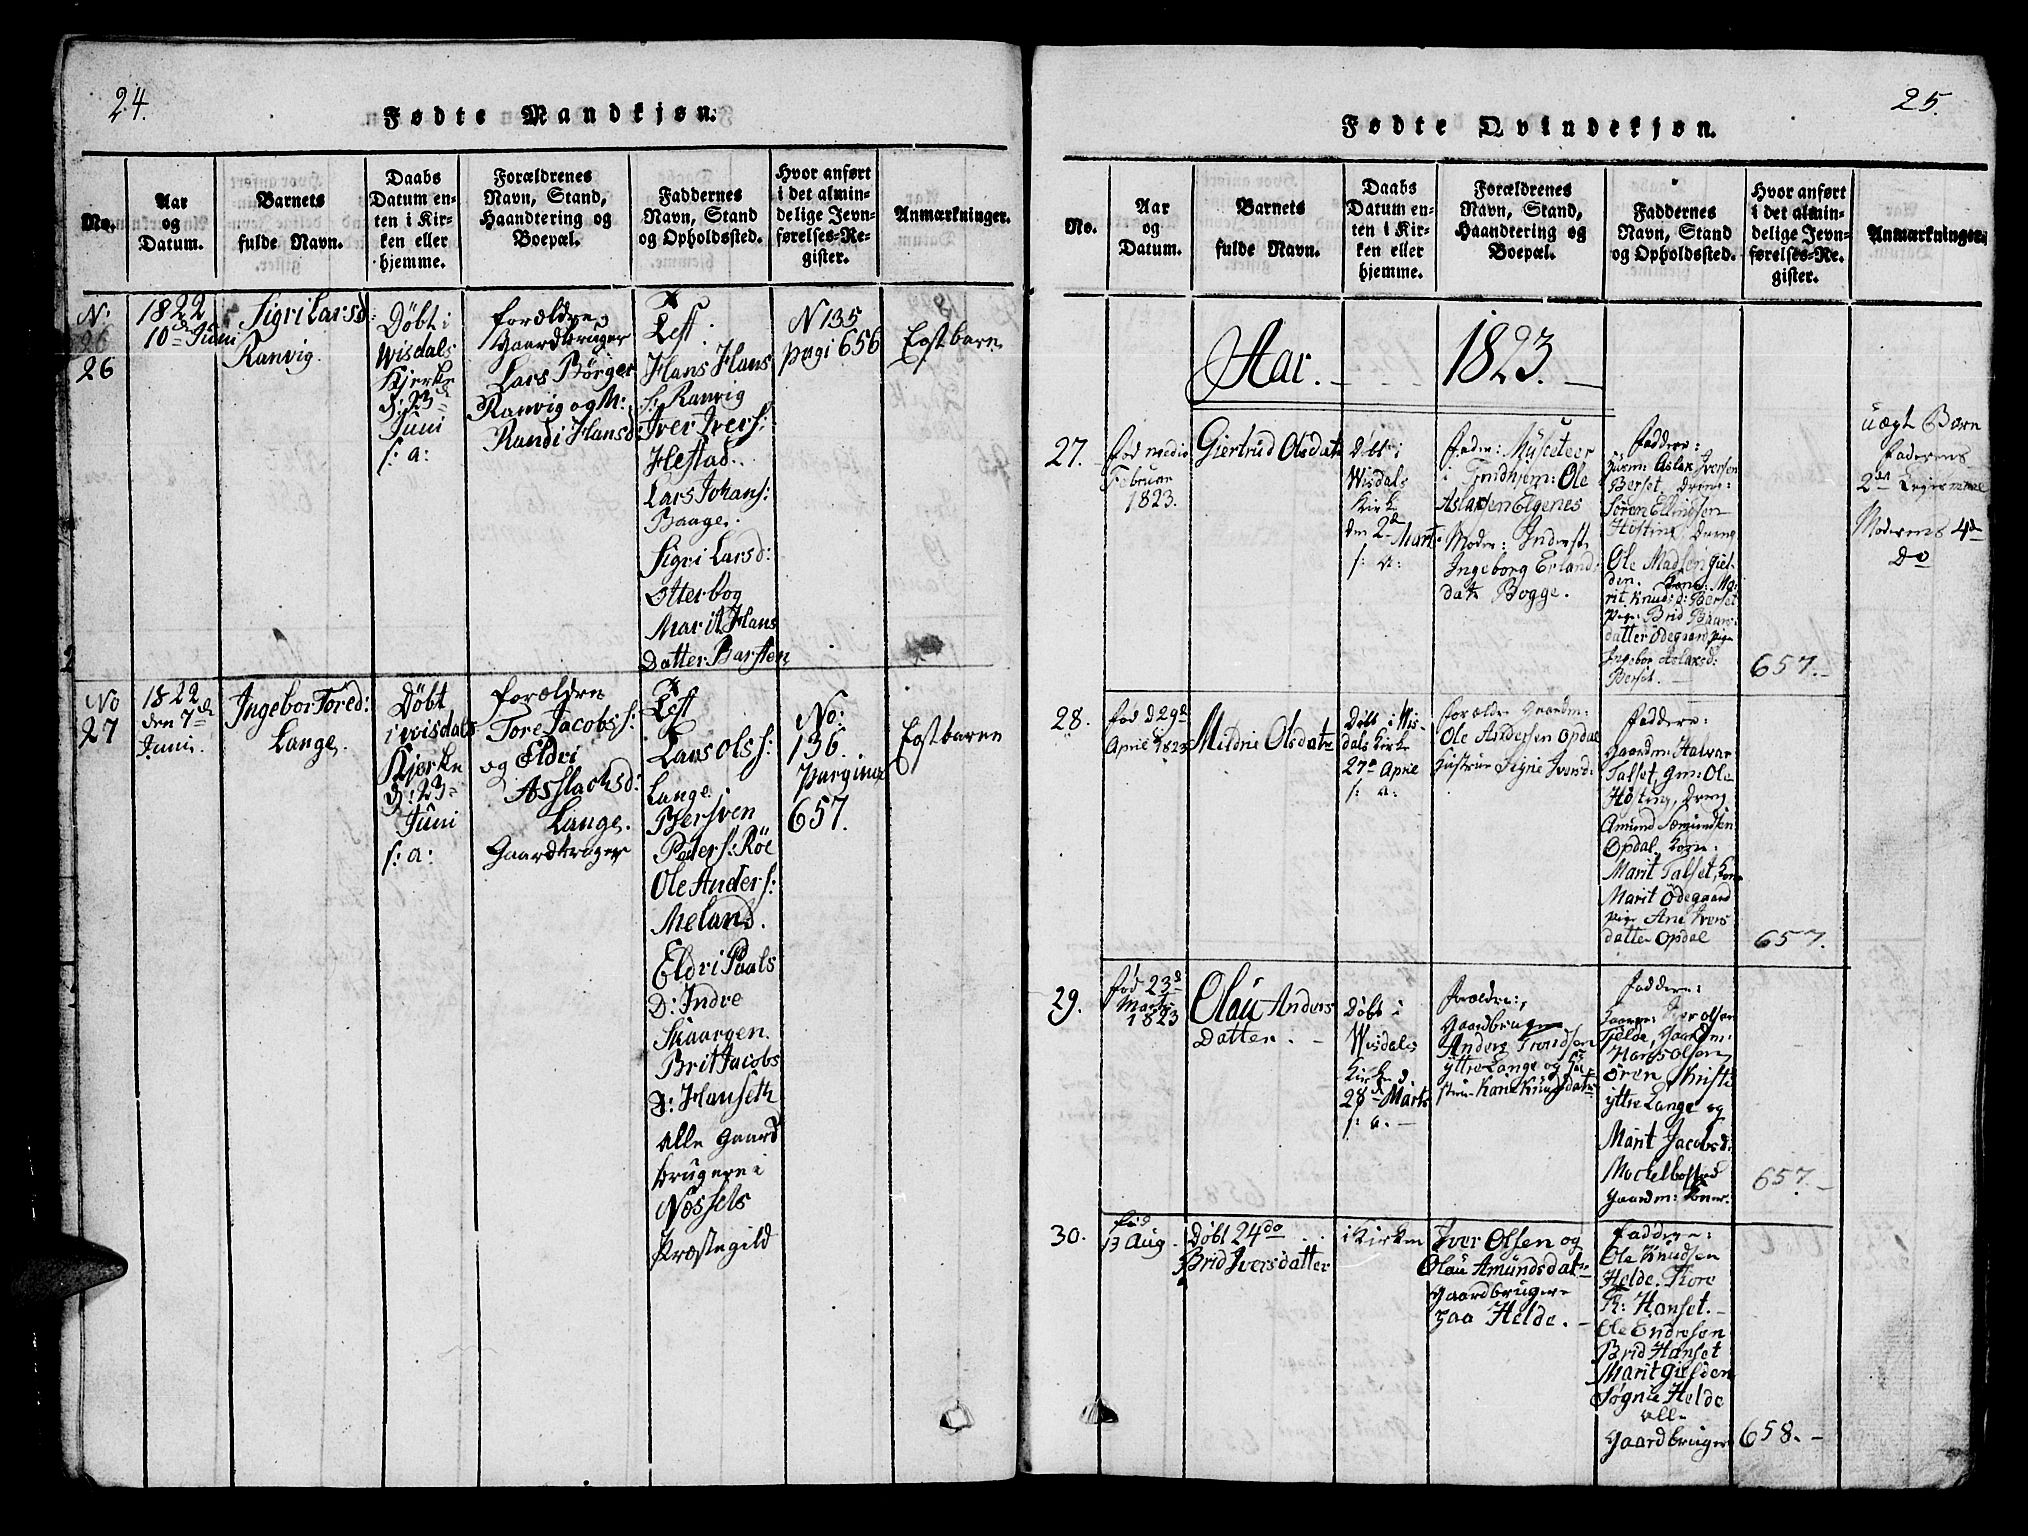 24.
Fødte Mandkjøn.
No.
Aar
og
Datum.
Barnets
fulde Navn.
Daabs
Datum en-
ten i Kir-
ken eller
hjemme.
Forældrenes
Navn, Stand,
Haandtering og
Boepæl.
Faddernes
Navn, Stand
og Opholdssted.
Hvor anført
i det almin-
delige Jevn-
førelses-Re-
gister.
Anmærkninger.
No:
26
26
1822
10de Juni
Sigri Larsd:
Ranvig.
Døbt i
Wisdals
Kjerke
d: 23d
Juni
s: a:
forældre
Gaardbruger
Lars Børger
Ranvig og M:
Randi Hansd
Test.
Hans Hans
s: Ranvig
Iver Ivers:
Hestad.
Lars Johans:
Baage.
Sigri Larsd:
Otterbog
Marit Hans
Datter Barsten
N 135
pagi 656
Egtbarn
No
27
1822
den 7de
Juni.
Ingebor Tored:
Lange.
Døbt
i Wisdals
Kjerke
d: 23
Juni
s: a:
forældre
Tore Jacobs s:
og Eldri
Asslachsd:
Lange.
Gaardbruger
Test
Lars Ols s:
Lange
Bersven
Peders: Röe
Ole Anders:
Meland.
Eldri Paals
D: Indre
Skaargen.
Brit Jacobs
D: Hanseth
alle Gaard
brugere i
Næssets
Præstegild
No:
136.
pargina
657.
Egtbaren
25.
Fødte Qvindekjøn.
No.
Aar
og
Datum.
Barnets
fulde Navn.
Daabs
Datum en-
ten i Kir-
ken eller
hjemme.
Forældrenes
Navn, Stand,
Haandtering og
Boepæl.
Faddernes
Navn, Stand
og Opholdssted.
Hvor anført
i det almin-
delige Jevn-
førelses-Re-
gister.
Anmærkninger.
Aar. - - - 1823. -
27.
fød medio
Februar
1823.
Giertrud Olsdatr
Døbt i
Wisdals
Kirke
den 2d Marts
s: a:
Fader: Musceteer
i Trndhjem: Ole
Aslaksen Elgenes
Moder: Inderst
Ingeborg Erland
datr Bogge.
Faddere:
Aslak Iversen
Berset, Dreng:
Søren Ellingsen
Høsting Dreng
Ole Madsen Giel-
den. Kone: Ma-
rit Knudsd: Berset
Pige: Brid Baars-
datter Ödegaard Pige
Ingebor Aslaksd:
Berset. -
657. -
uægt Barn
Faderens
2den Leiermaal
Moderens 4de
Do
28.
fød d 29de
April 1823
Mildrie Olsdatr
Døbt i Wis-
dals Kirke
27de April
s: a:
Forældre Gaardm:
Ole Andersen Opdal
Hustrue Signe Iversd:
Faddere:
Gaardm: Halvar
Talset, Gm: Ole
Høsting, Dreng
Amund Sæmundsen
Opdal. Kone:
Marit Talset, Kone
Marit Ödegaard
Pige Ane Ivers
datter Opdal
657.
29.
fød 23d
Marts
1823
Olau Anders
Datter. -
Døbt i
Wisdals
Kirke d
28d Marts
s: a. -
Forældre:
Gaardbruger
Anders Trondsen
ytre Lange og Hu-
strue Kari Knudsdatr
Faddere:
Iver Olsen
Tjelde, Gaardm:
Hans Olsen
Ören
ytre Lange og
Marit Jacobsd:
Mochelbostad
Gaardm: Koner.
657. -
30.
fød
13 Aug.
Døbt 24do
Brid Iversdatter
i Kirken
Iver Olsen og
Olau Amundsdatr
Gaardbrugere
paa Helde. -
Faddere:
Ole Knudsen
Helde. Tore
Th: Hanset. -
Ole Endresen
Brid Hanset
Marit Gielden
Søgnie Helde
alle
Gaardbruger
658. -